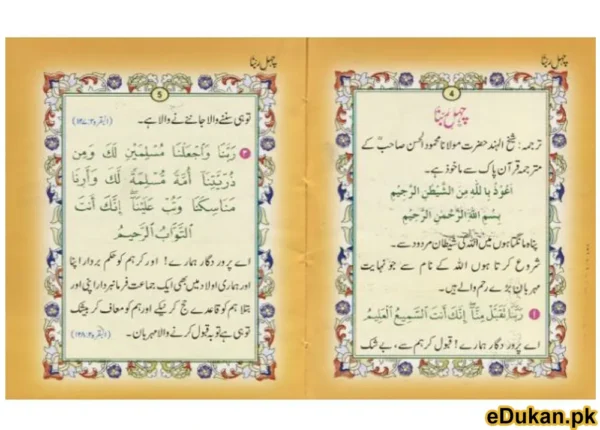 چہل ربنا
4
چہل ربنا
ترجمہ: شیخ الہند حضرت مولانا محمود الحسن صاحبؒ کے
مترجمہ قرآن پاک سے ماخوذ ہے۔
اَعُوْذُ بِاللّٰهِ مِنَ الشَّيْطٰنِ الرَّجِيْمِ
بِسْمِ اللّٰهِ الرَّحْمٰنِ الرَّحِيْمِ
پناہ مانگتا ہوں میں اللہ کی شیطان مردود سے۔
شروع کرتا ہوں اللہ کے نام سے جو نہایت
مہربان بڑے رحم والے ہیں۔
۱ رَبَّنَا تَقَبَّلْ مِنَّا ؕ اِنَّكَ اَنْتَ السَّمِيْعُ الْعَلِيْمُ
اے پرور دگار ہمارے! قبول کر ہم سے، بے شک
چہل ربنا
5
تو ہی سننے والا جاننے والا ہے۔ (البقرہ ۱۲۷:۲)
۲ رَبَّنَا وَاجْعَلْنَا مُسْلِمَيْنِ لَكَ وَمِنْ
ذُرِّيَّتِنَا اُمَّةً مُّسْلِمَةً لَّكَ وَاَرِنَا
مَنَاسِكَنَا وَتُبْ عَلَيْنَا ۚ اِنَّكَ اَنْتَ
التَّوَّابُ الرَّحِيْمُ
اے پرور دگار ہمارے! اور کر ہم کو حکم بردار اپنا
اور ہماری اولاد میں بھی ایک جماعت فرمانبردار اپنی اور
بتلا ہم کو قاعدے حج کرنیکے اور ہم کو معاف کر بیشک
تو ہی ہے توبہ قبول کرنے والا مہربان۔ (البقرہ ۱۲۸:۲)
eDukan.pk